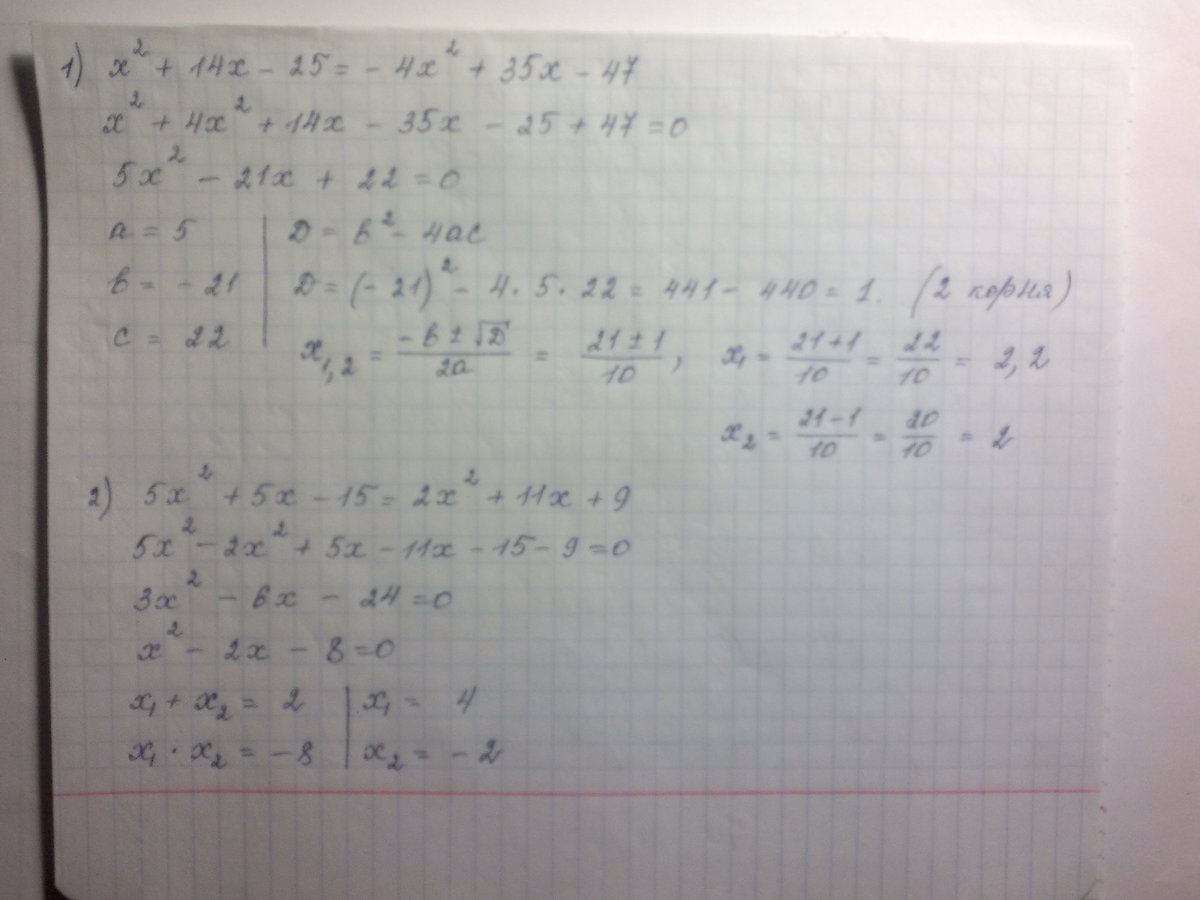 1) x² + 14x - 25 = - 4x² + 35x - 47
x² + 4x² + 14x - 35x - 25 + 47 = 0
5x² - 21x + 22 = 0
a = 5 | D = b² - 4ac
b = - 21 | D = (- 21)² - 4 · 5 · 22 = 441 - 440 = 1. (2 корня)
c = 22 | x₁,₂ = (-b ± √D)/2a = (21 ± 1)/10 ; x₁ = (21+1)/10 = 22/10 = 2,2
x₂ = (21-1)/10 = 20/10 = 2
2) 5x² + 5x - 15 = 2x² + 11x + 9
5x² - 2x² + 5x - 11x - 15 - 9 = 0
3x² - 6x - 24 = 0
x² - 2x - 8 = 0
x₁ + x₂ = 2 | x₁ = 4
x₁ · x₂ = -8 | x₂ = - 2